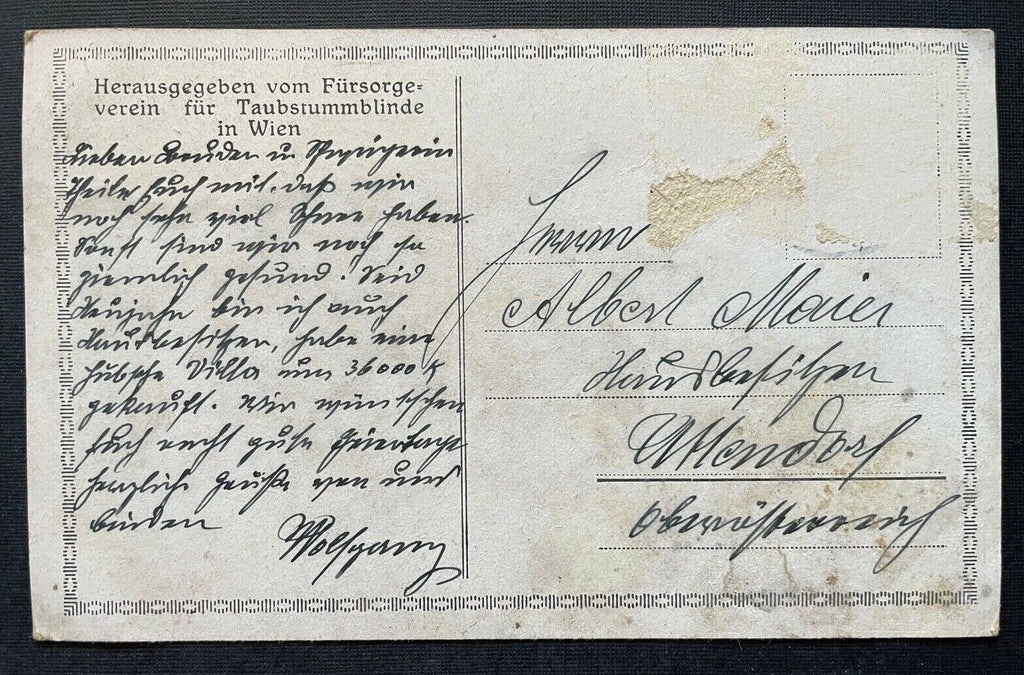 Herausgegeben vom Fürsorge-
verein für Taubstummblinde
in Wien
Lieben Bruder u. Schwägerin
Theile Euch mit, daß wir
noch sehr viel Schnee haben.
Sonst sind wir noch so
ziemlich gesund. Seid
Neujahr bin ich auch
Hausbesitzer, habe eine
hübsche Villa um 36000 K
gekauft. Wir wünschen
Euch recht gute Feiertage
herzliche Grüße von uns
beiden
Wolfgang
Herrn
Albert Maier
Hausbesitzer
Uttendorf
Oberösterreich